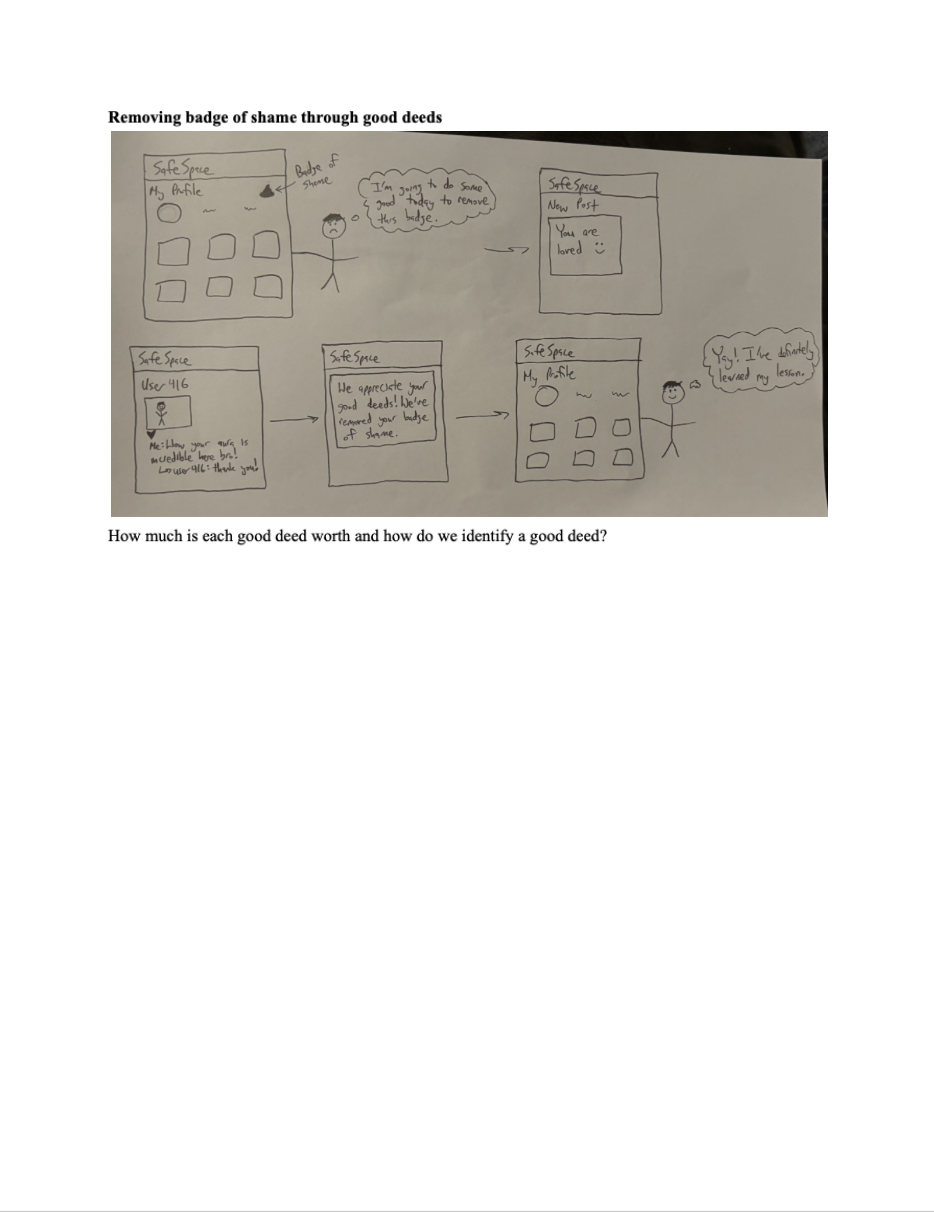 Removing badge of shame through good deeds
Safe Space
My Profile
Badge of
shame
I'm going to do some
good today to remove
this badge.
Safe Space
New Post
You are
loved
Safe Space
User 416
Me: Wow your aura is
incredible here bro!
user 416: thank you!
Safe Space
We appreciate your
good deeds! We've
removed your badge
of shame.
Safe Space
My Profile
Yay! I've definitely
learned my lesson.
How much is each good deed worth and how do we identify a good deed?